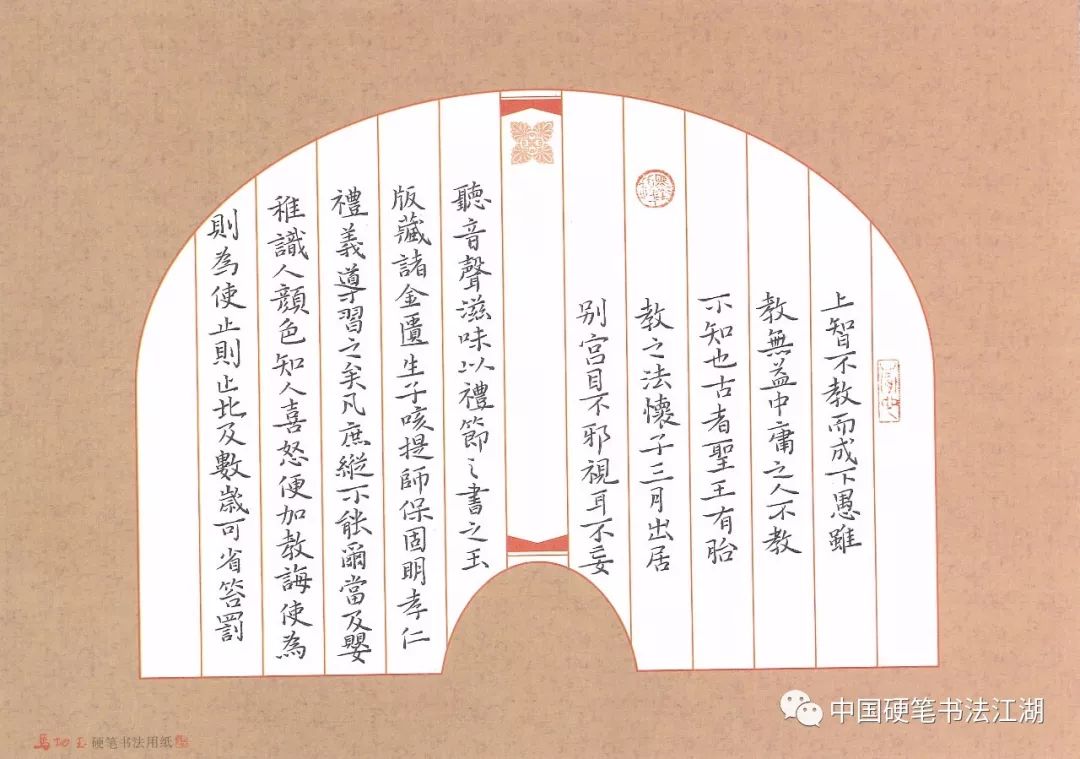 上智不教而成下愚雖
教無益中庸之人不教
不知也古者聖王有胎
教之法懷子三月出居
别宫目不邪視耳不妄
聽音聲滋味以禮節之書之玉
版藏諸金匱生子咳提師保固明孝仁
禮義導習之矣凡庶縱不能爾當及嬰
稚識人顔色知人喜怒便加教誨使為
則為使止則止比及數歲可省笞罰
硬笔书法用纸
中国硬笔书法江湖